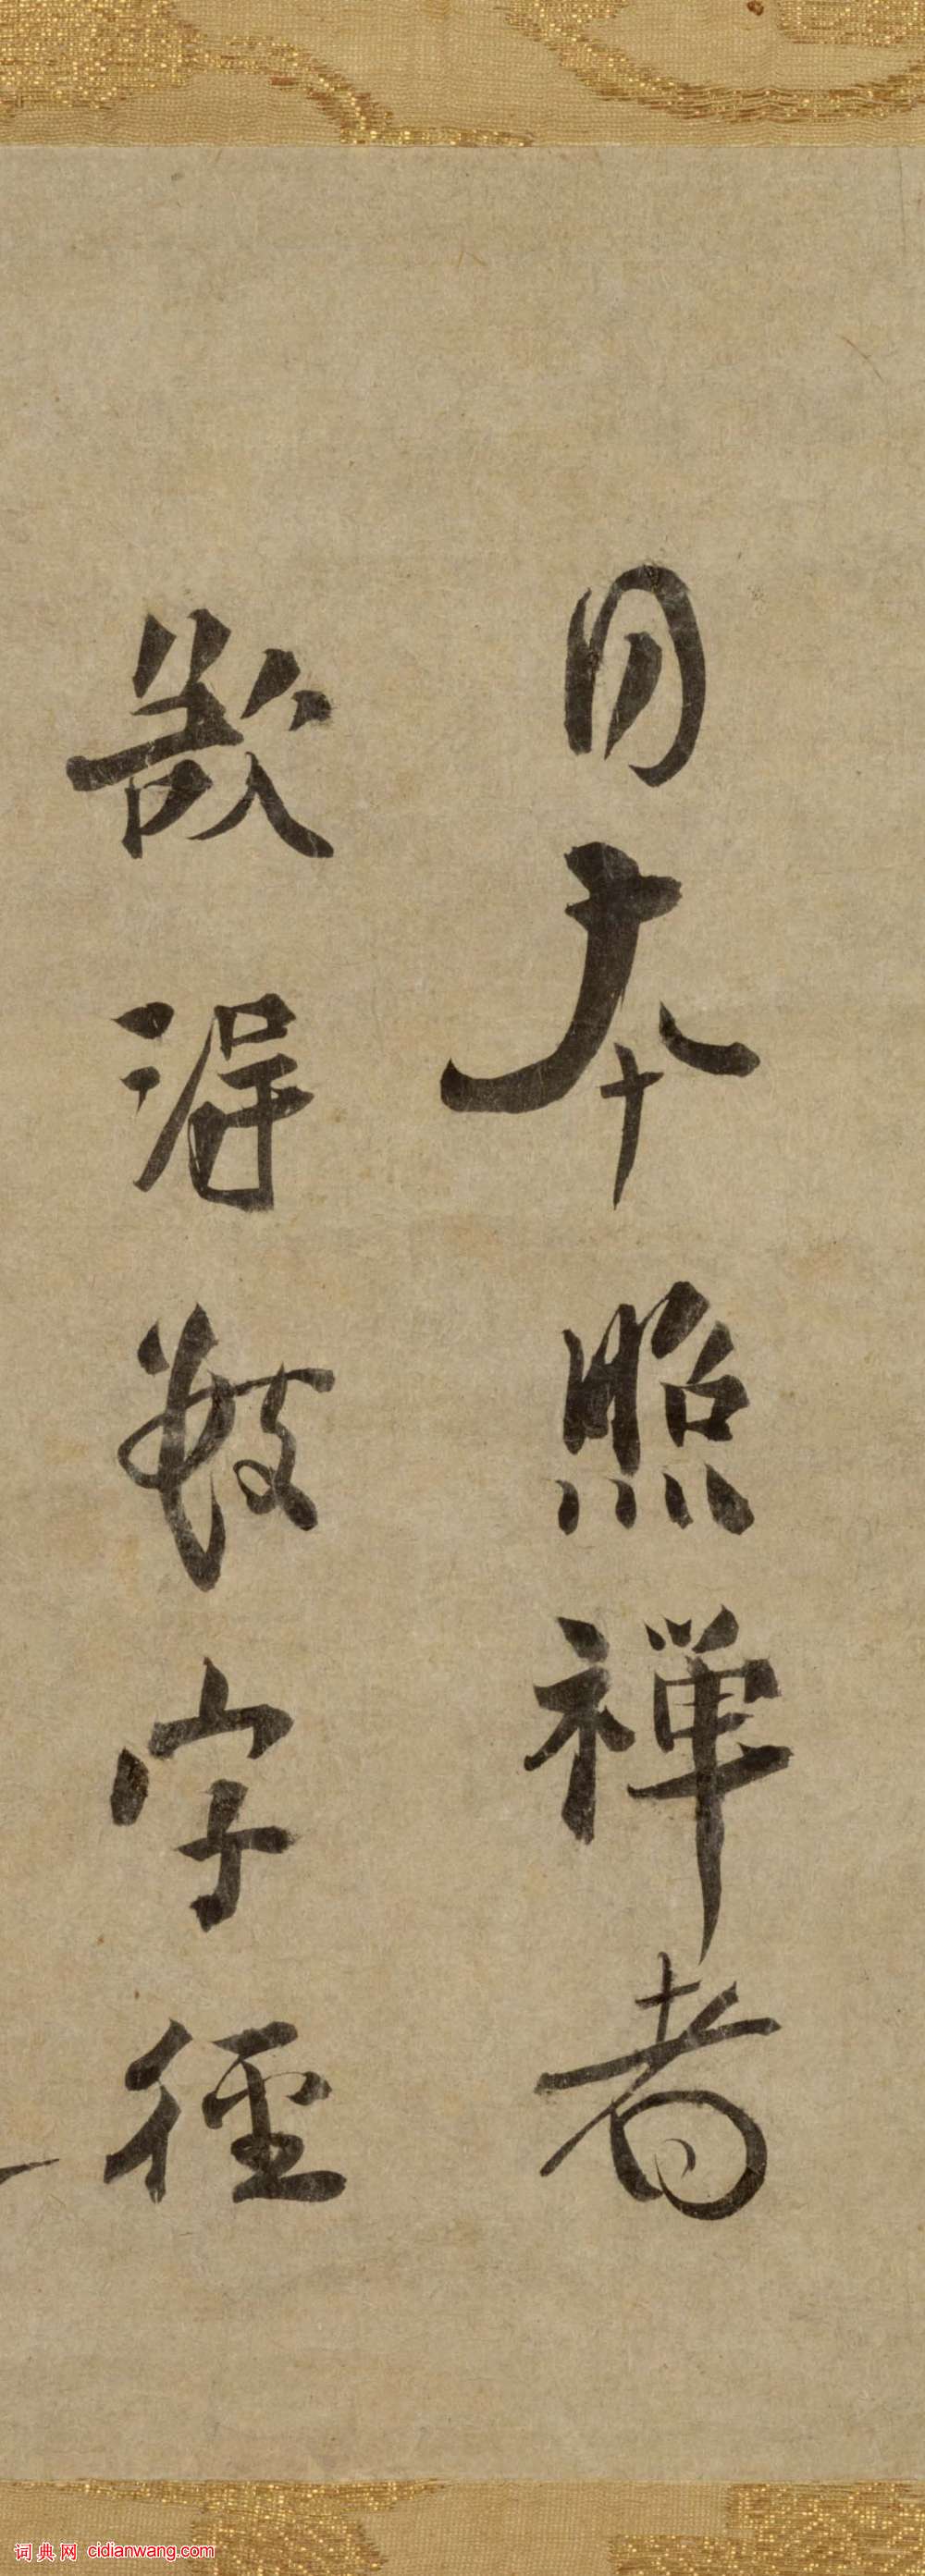 日本照禅者
欲得数字径
词典网 cidianwang.com